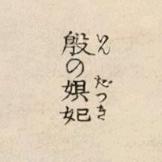 殷の妲妃
いん だつき